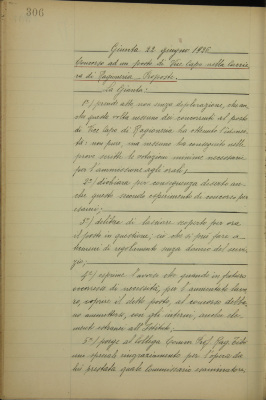 306
Giunta 22 giugno 1935
Concorso ad un posto di Vice Capo nella carrie
ra di Ragioneria. Proposte.
La Giunta:
1°) prende atto, non senza deplorazione, che an
che questa volta nessuno dei concorrenti al posto
di Vice Capo di Ragioneria ha ottenuto l'idonei
tà: non pure, ma nessuno ha conseguito nelle
prove scritte la votazione minima necessaria
per l'ammissione agli orali;
2°) dichiara per conseguenza deserto an
che questo secondo esperimento di concorso per
esami;
3°) delibera di lasciare scoperto per ora
il posto in questione, ciò che si può fare a
termini di regolamento senza danno del servi
zio;
4°) esprime l'avviso che quando in futuro
occorresse di necessità, per l'aumentato lavo
ro, coprire il detto posto, al concorso debba
no ammettersi, con gli interni, anche ele
menti estranei all'Istituto;
5°) porge al collega Comm. Prof. Rag.
uno speciale ringraziamento per l'opera da
lui prestata quale Commissario